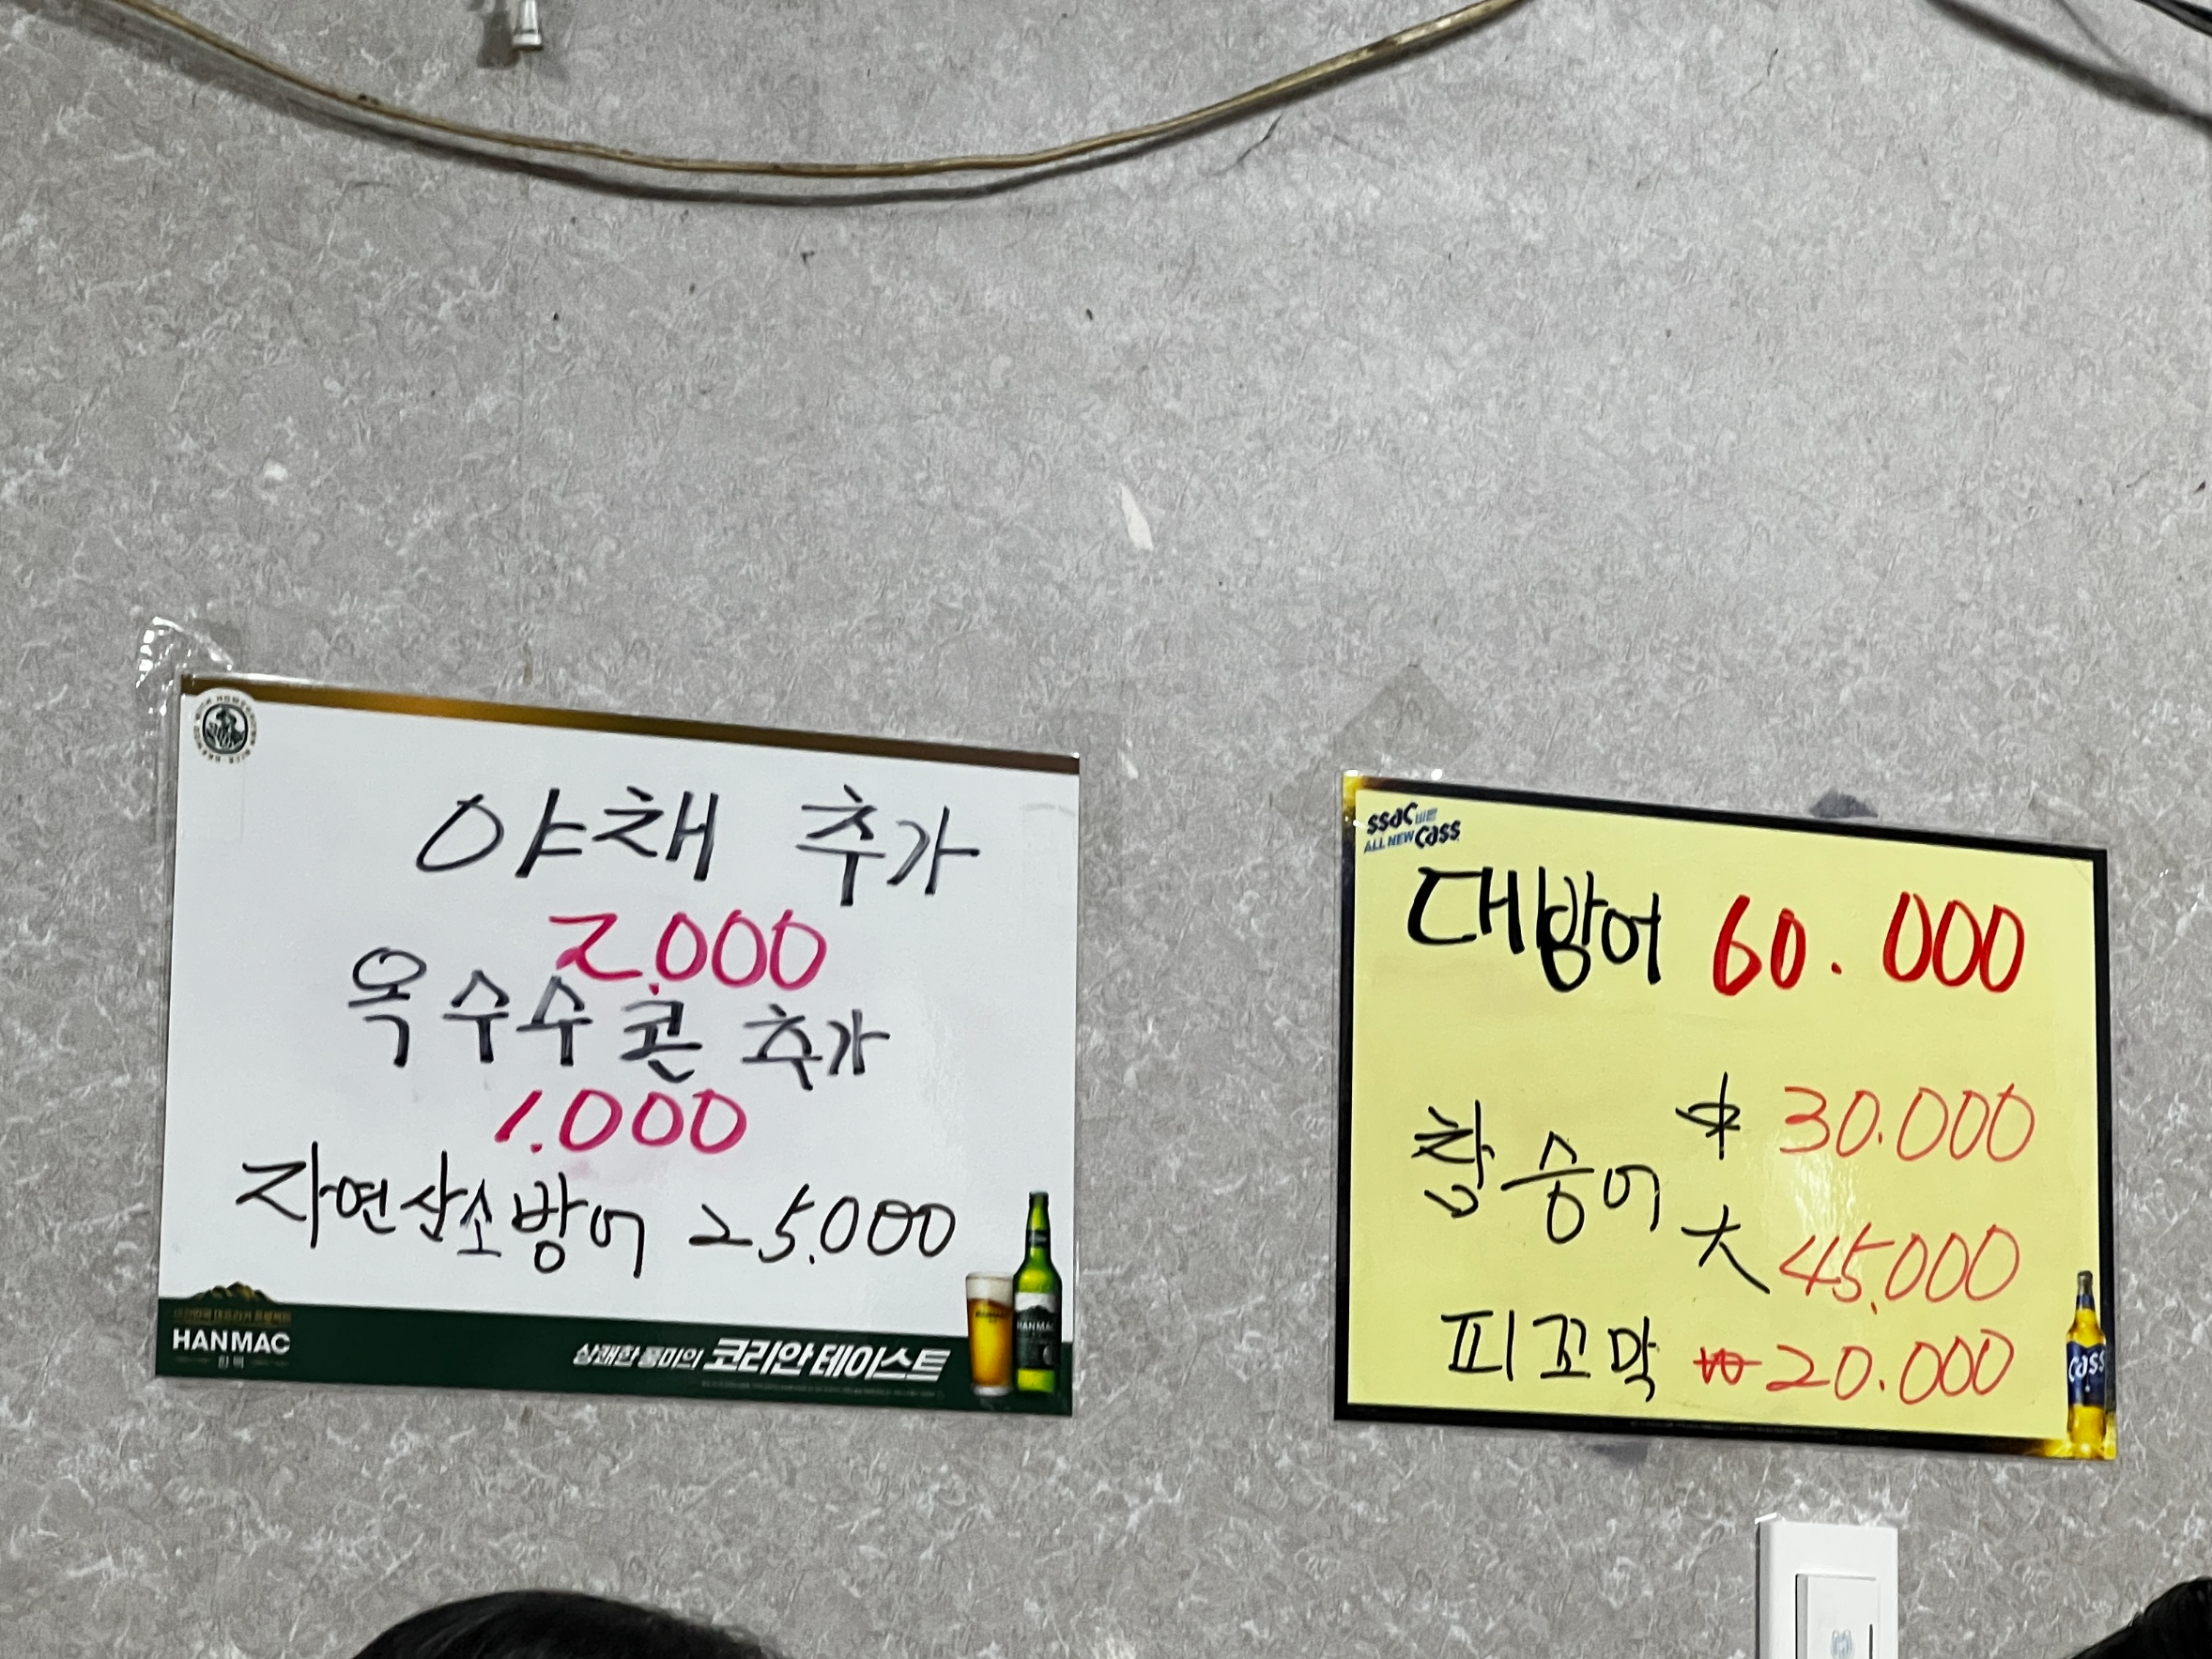 야채 추가
2.000
옥수수콘 추가
1.000
자연산소방어 25.000
HANMAC
한맥
상쾌한 풍미의 코리안 테이스트
HANMAC
ssac
ALL NEW Cass
대방어 60.000
참숭어 中 30.000
大 45.000
피꼬막 ₩20.000
Cass